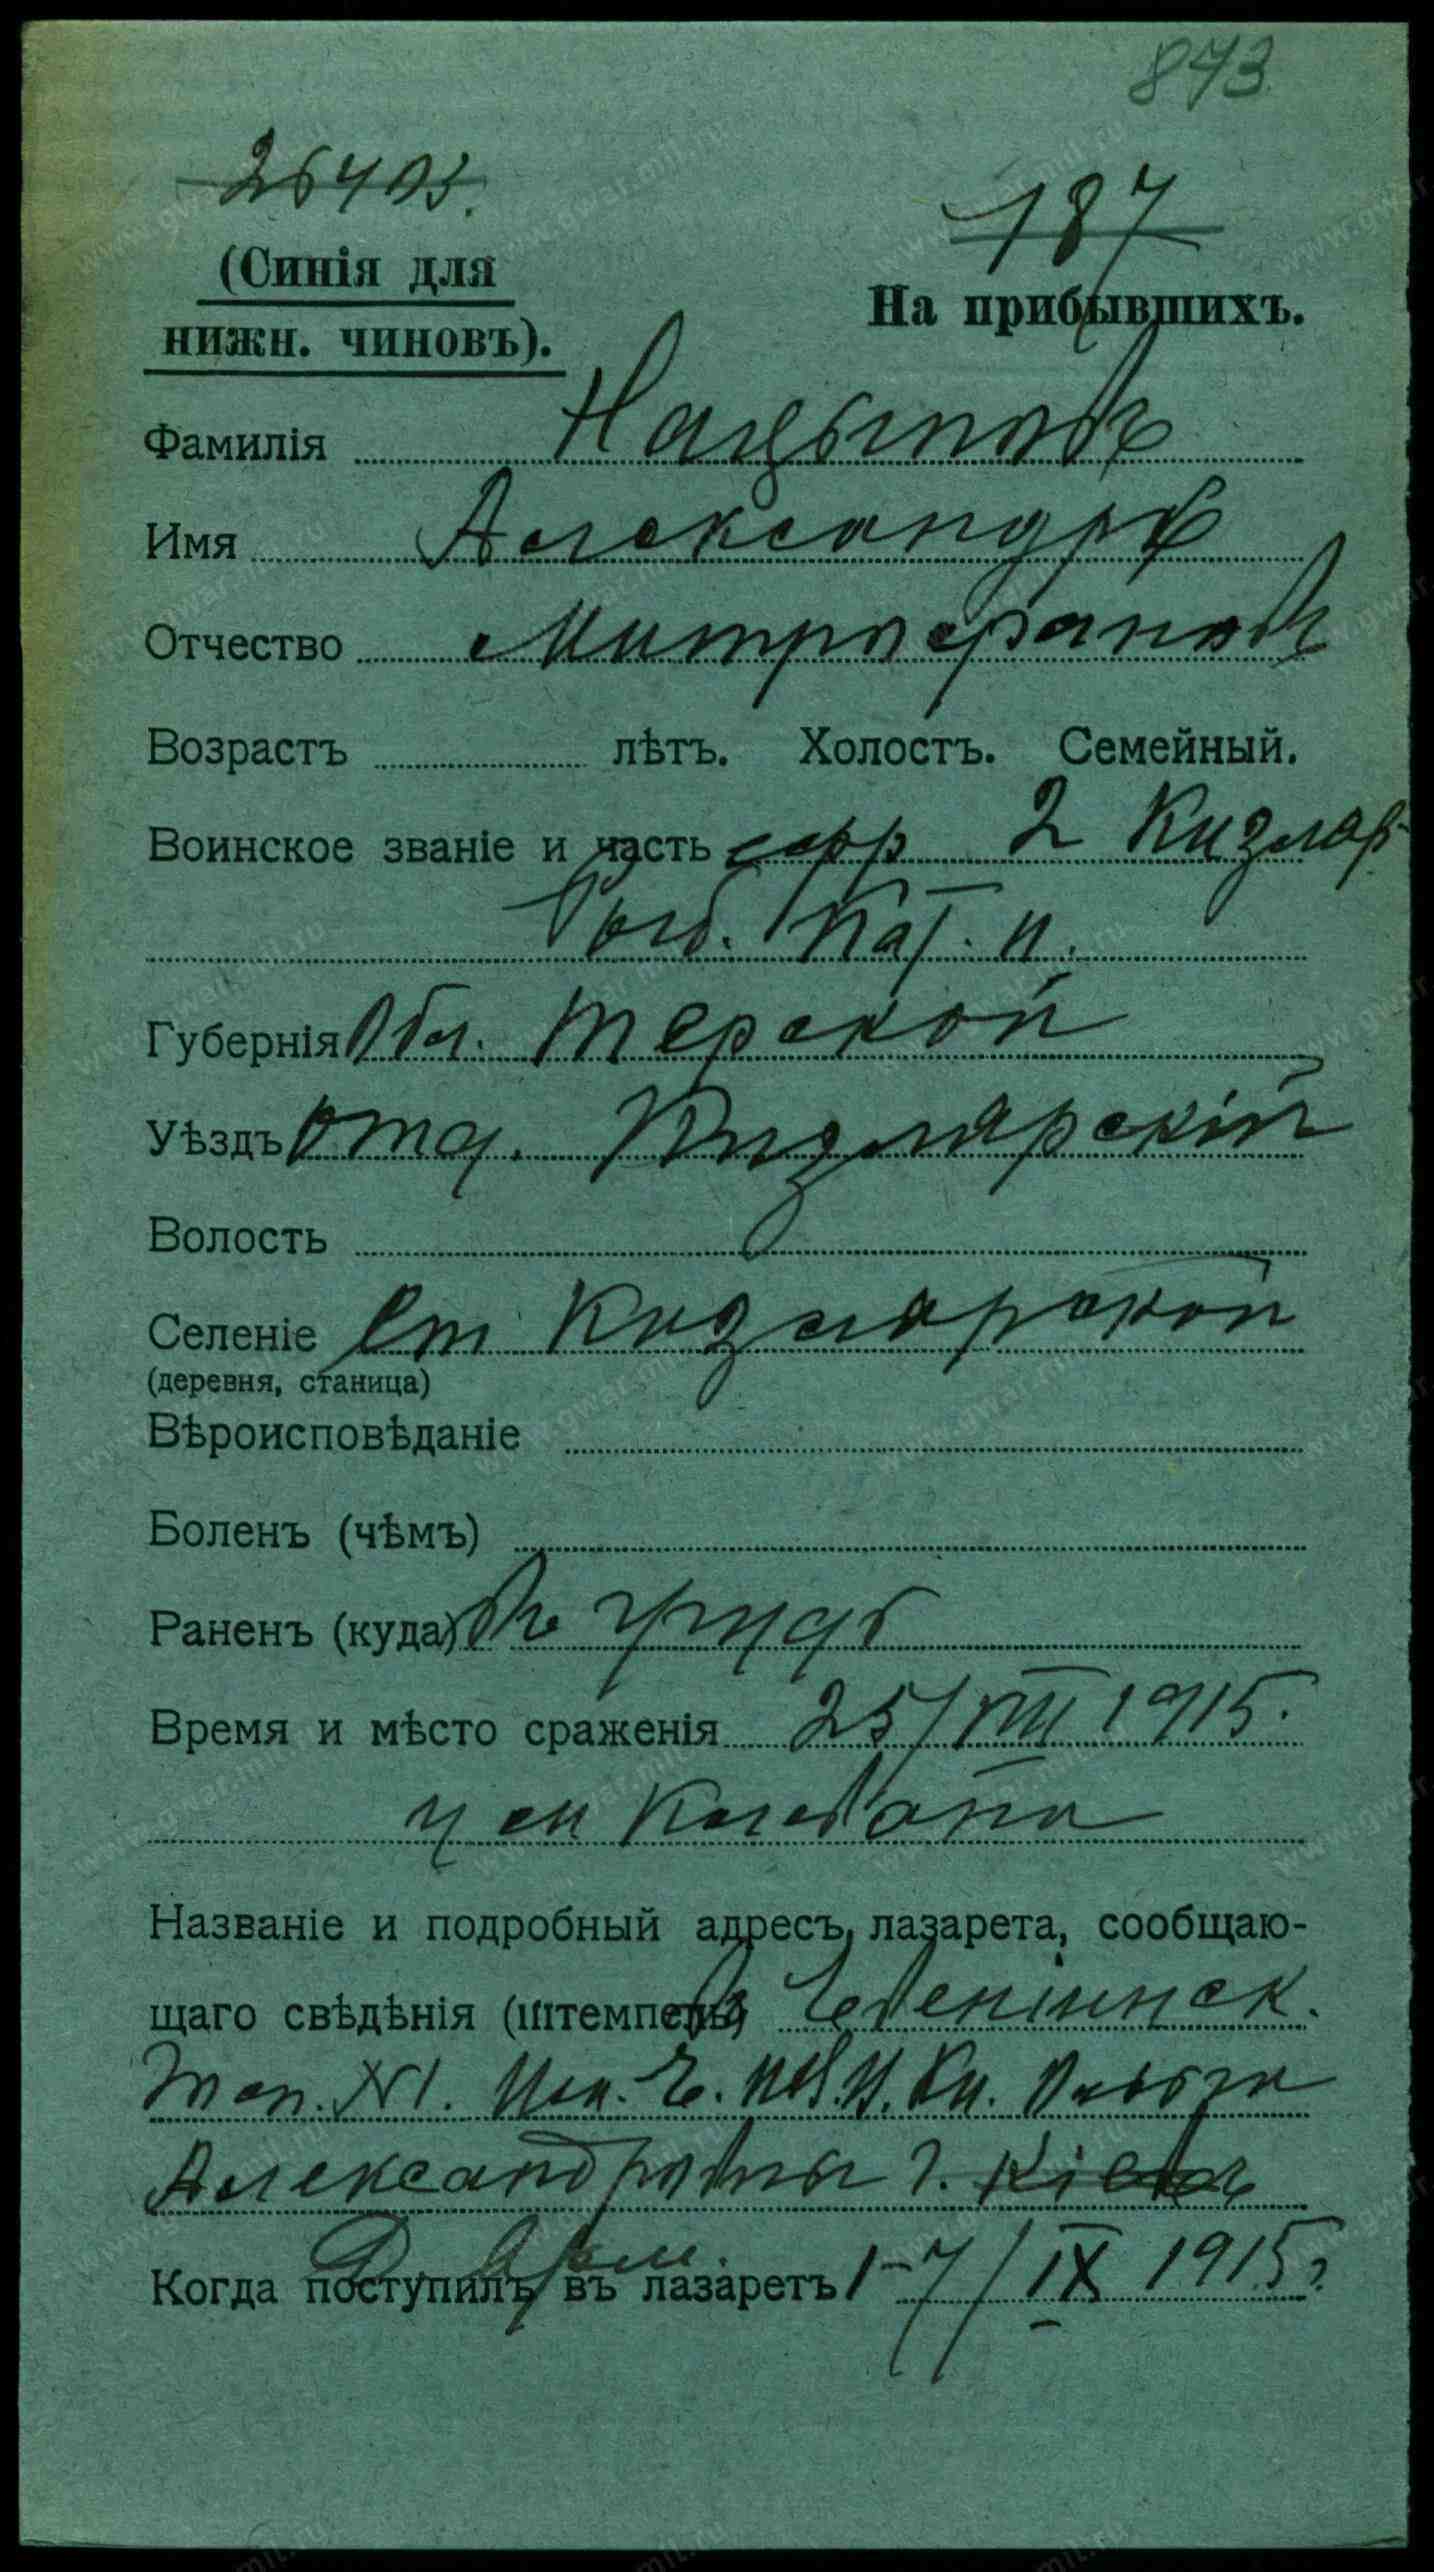 873
26403.
187
(Синія для
нижн. чиновъ).
На прибывшихъ.
Фамилія
Имя Александръ
Отчество Митрофановъ
Возрастъ лѣтъ. Холостъ. Семейный.
Воинское званіе и часть 2 Кизляр-
Каз. п.
Губернія Обл. Терской
Уѣздъ отд. Кизлярскій
Волость
Селеніе Ст Кизлярской
(деревня, станица)
Вѣроисповѣданіе
Боленъ (чѣмъ)
Раненъ (куда) Въ грудь
Время и мѣсто сраженія 25/VIII 1915.
Названіе и подробный адресъ лазарета, сообщаю-
щаго свѣдѣнія (штемпель)
№1. Е. И. В. В. Кн. Ольги
Александровны г. Кіевъ
Д. Арм.
Когда поступилъ въ лазаретъ 1-7/IX 1915г